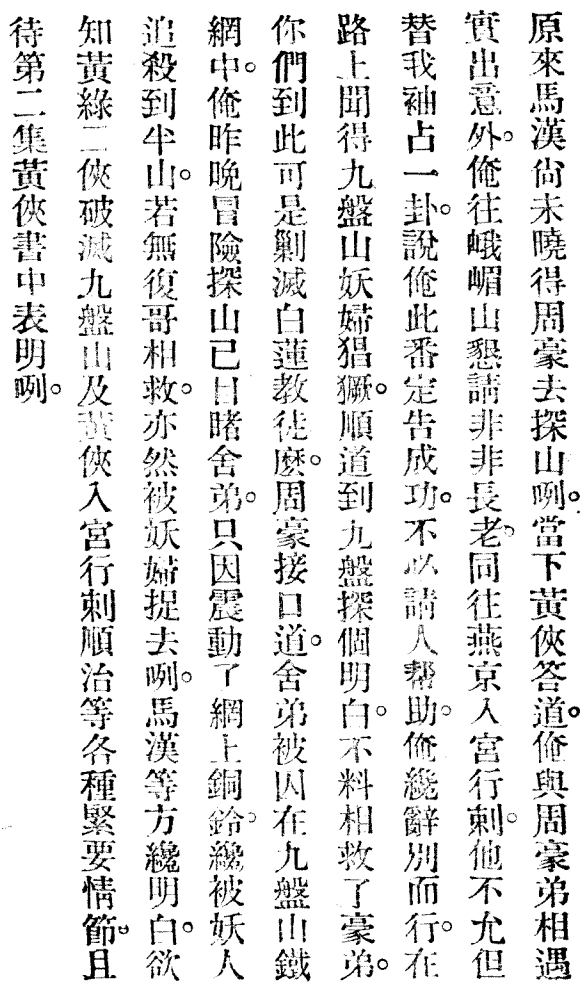 原來馬漢尙未曉得周豪去探山咧。當下黃俠答道。俺與周豪弟相遇
實出意外。俺往峨嵋山懇請非非長老。同往燕京入宮行刺。他不允但
替我袖占一卦。說俺此番定告成功。不必請人幫助。俺纔辭別而行。在
路上聞得九盤山妖婦猖獗。順道到九盤探個明白。不料相救了豪弟。
你們到此可是剿滅白蓮教徒麽。周豪接口道。舍弟被囚在九盤山鐵
網中。俺昨晚冒險探山已目睹舍弟。只因震動了網上銅鈴。纔被妖人
追殺到半山。若無復哥相救。亦然被妖婦捉去咧。馬漢等方纔明白。欲
知黃綠二俠破滅九盤山及黃俠入宮行刺順治等各種緊要情節。且
待第二集黃俠書中表明咧。